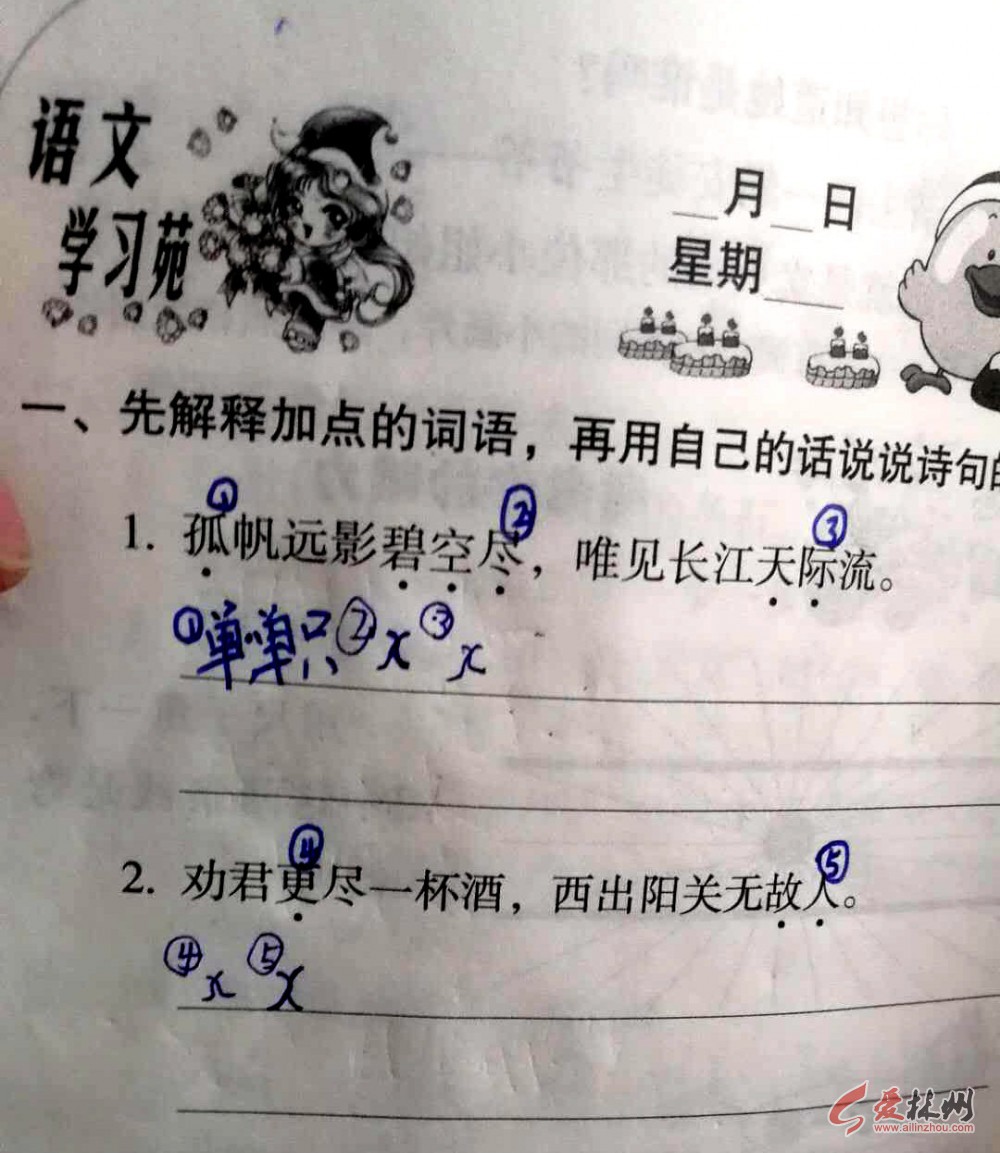 语文
学习苑
__月__日
星期____
一、先解释加点的词语，再用自己的话说说诗句的
① ② ③
1. 孤帆远影碧空尽，唯见长江天际流。
①单单只②x ③x
④ ⑤
2. 劝君更尽一杯酒，西出阳关无故人。
④x ⑤x
爱林州
www.ailinzhou.com